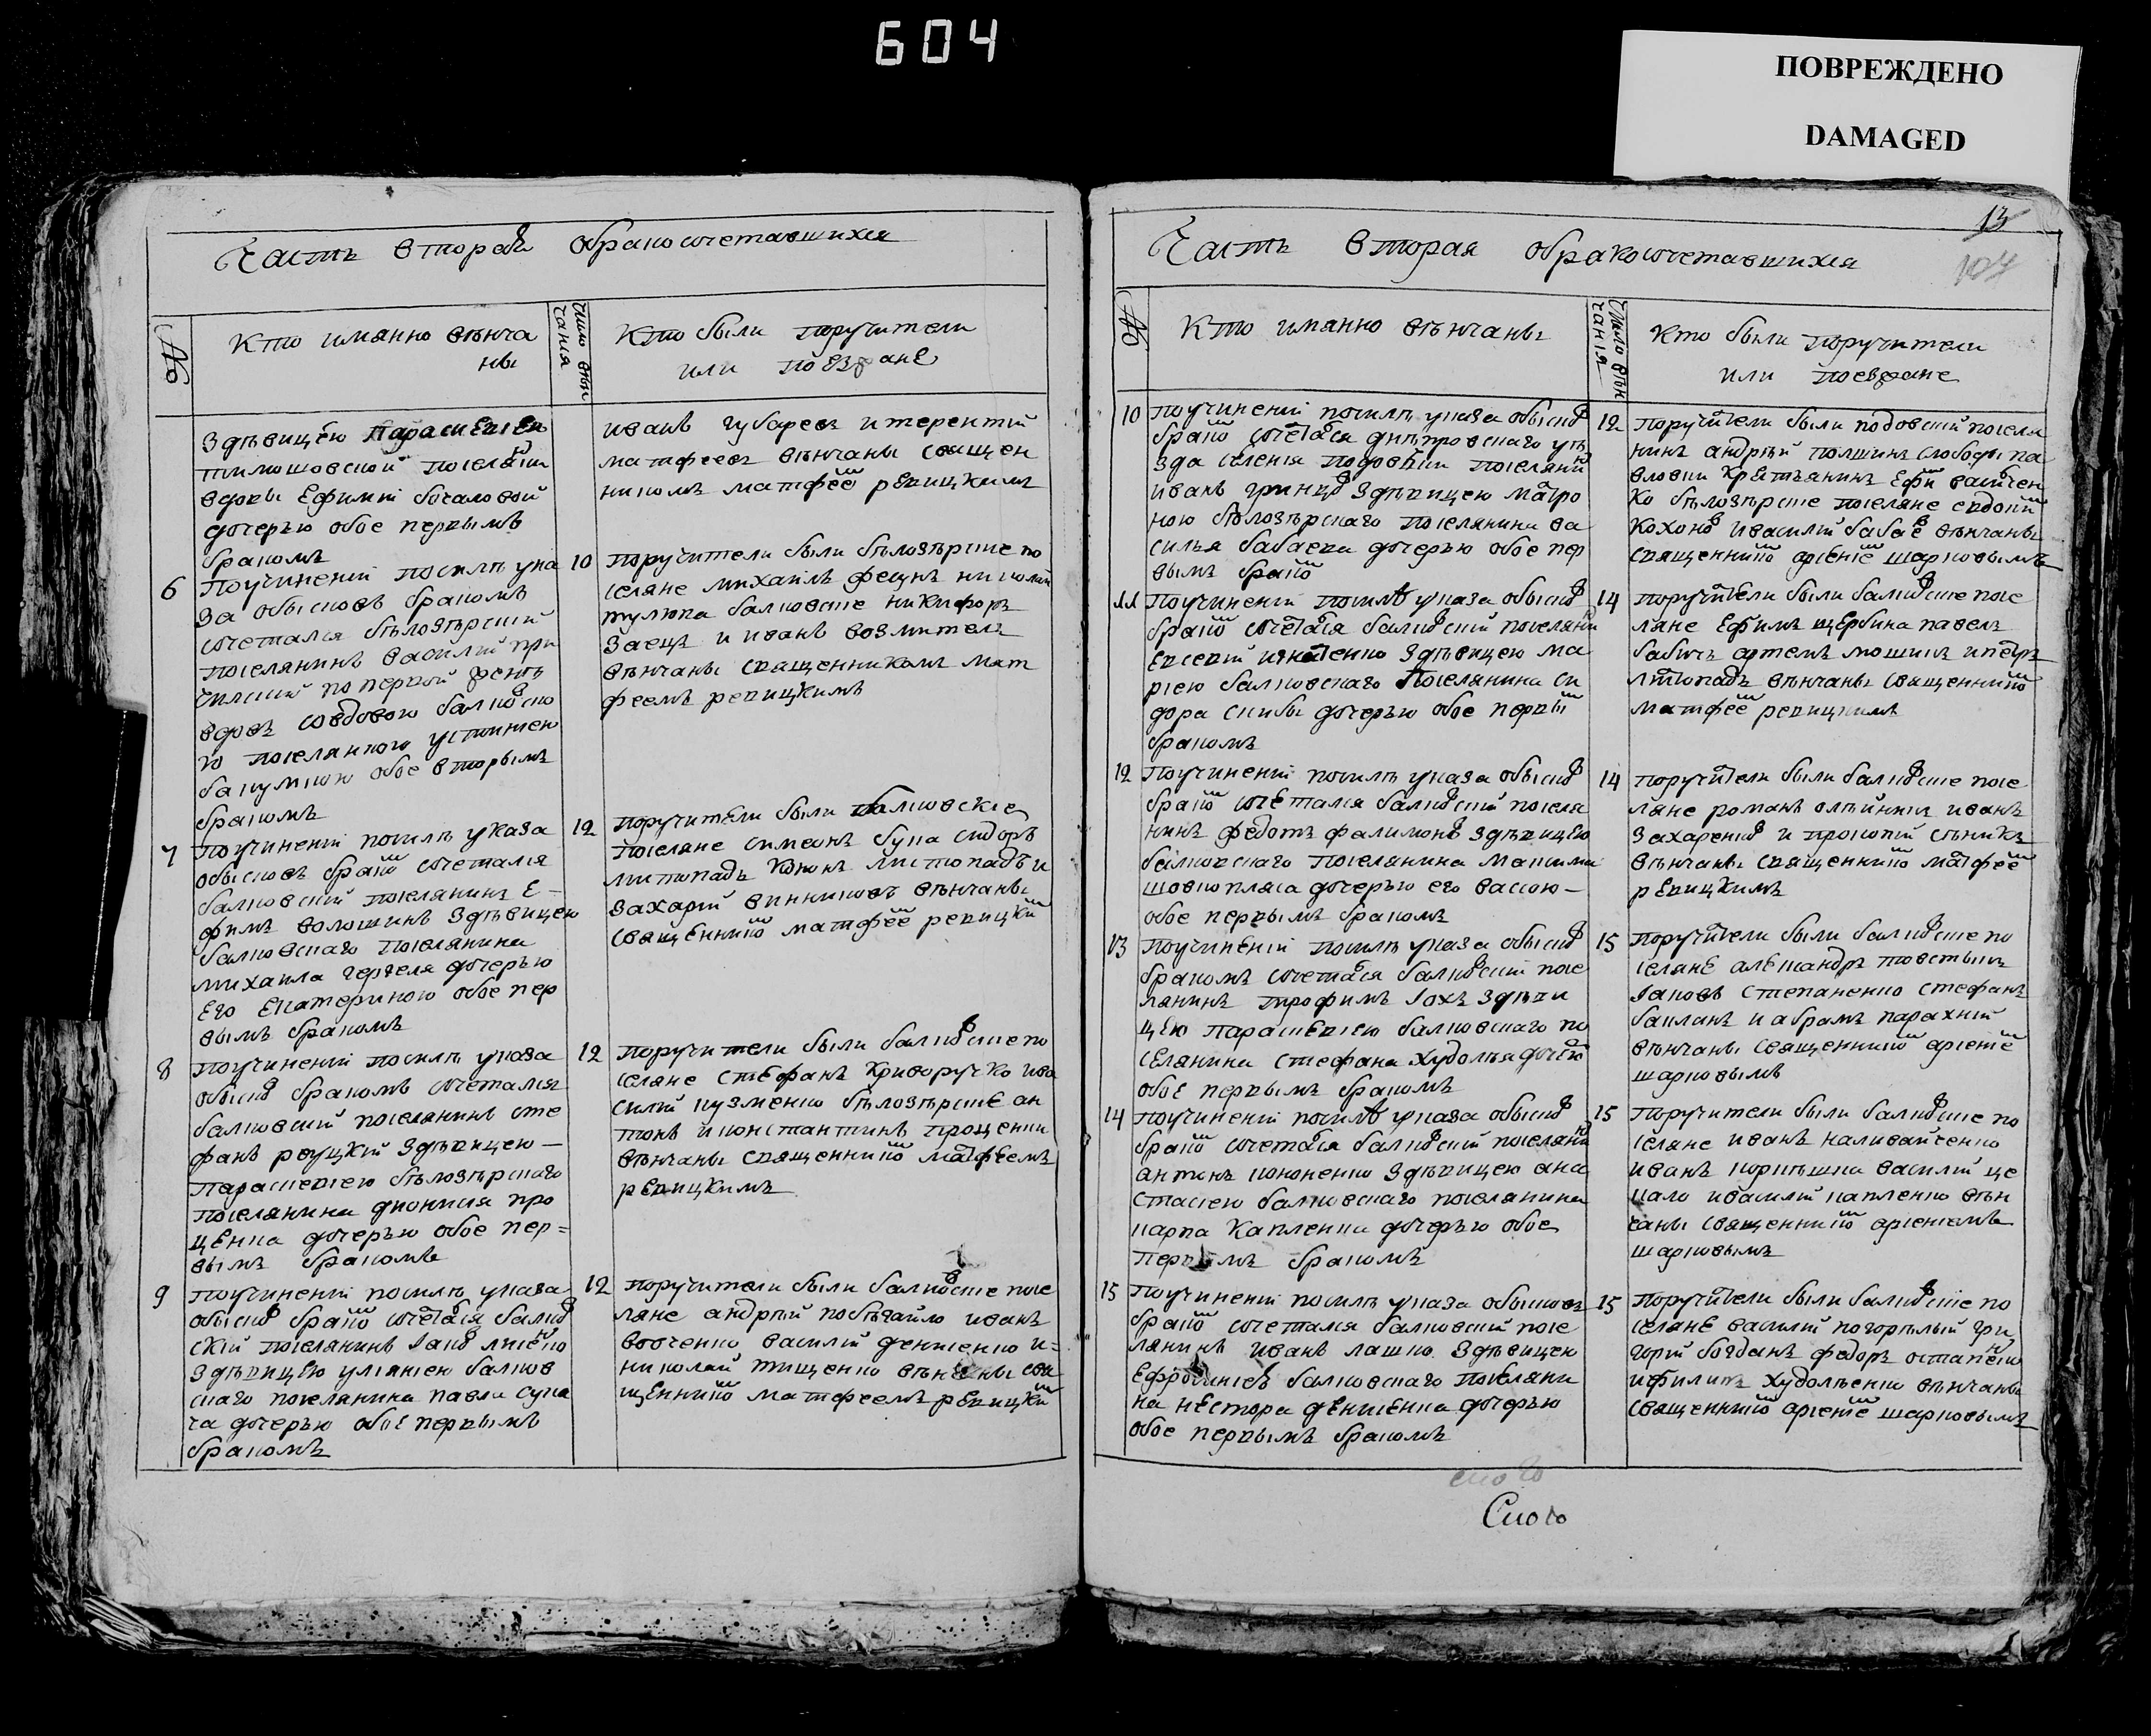 604
ПОВРЕЖДЕНО
DAMAGED
Часть вторая обракосочетавшихся
№
Кто имянно венча
ны
Число вен
чания
Кто были поручители
или поезжане
здѣвицею Параскевiею
тимошовской поселянки
вдовы Ефимiи
дочерью обое первымъ
бракомъ
иванъ губаревъ итерентiй
матфеевъ венчаны священ
никомъ матфеемъ ревицкимъ
6
Поучиненiи посилѣ ука
за обысковъ бракомъ
сочетался бѣлозѣрскiй
поселянинъ василiй при
по первой женѣ
вдовъ совдовою балковско
го поселянкою устинiею
обое вторымъ
бракомъ
10
поручители были бѣлозѣрские по
селяне михаилъ фецикъ николай
тулюпа балковские никифоръ
заецъ и иванъ возлителъ
вѣнчаны священникомъ мат
феемъ ревицкимъ
7
Поучиненiи посилѣ указа
обысковъ бракомъ сочетался
балковскiй поселянинъ е-
фимъ волошинъ здѣвицею
балковскаго поселянина
михаила гергеля дочерью
его екатериною обое пер
вымъ бракомъ
12
поручители были балковскiе
поселяне симеонъ бука сидоръ
листопадъ кононъ листопадъ и
захарiй винниковъ венчаны
священникомъ матфеемъ ревицким
8
поучиненiи посилѣ указа
обысковъ бракомъ сочетался
балковскiй поселянинъ сте
фанъ руцкiй здѣвицею —
параскевiею бѣлозѣрскаго
поселянина дионисия про
ценка дочерью обое пер=
вымъ бракомъ
12
поручители были балковские по
селяне стефанъ криворучко ива
силiй кузменко бѣлозѣрские ан
тонъ иконстантинъ проценки
вѣнчаны священникомъ матфеемъ
ревицкимъ
9
поучиненiи посилѣ указа
обысковъ бракомъ сочетался балков
скiй поселянинъ
здѣвицею улiянiею балков
скаго поселянина павла супа
ча дочерью обое первымъ
бракомъ
12
поручители были балковские посе
ляне андрѣй побѣгайло иванъ
вовченко василiй денисенко и=
николай тищенко вѣнчаны свя
щенникомъ матфеемъ ревицким
13
107
Часть вторая обракосочетавшихся
№
Кто имянно вѣнчаны
Число вен
чанiя
Кто были поручители
или поезжане
10
поучиненiи посилѣ указа обысковъ
бракомъ сочетался днѣпровскаго уѣ
зда селенiя подовки поселянинъ
иванъ гринцовъ здѣвицею матро
ною бѣлозѣрскаго поселянина ва
силья бабаева дочерью обое пер
вымъ бракомъ
12
поручители были подовскiй поселя
нинъ андрѣй полшинъ слободы па
вловки крѣстьянинъ ефимъ
ко бѣлозѣрские поселяне евдокимъ
кохоновъ ивасилiй бабаевъ вѣнчаны
священникомъ арсенiемъ шарковымъ
11
Поучиненiи посилѣ указа обысковъ
бракомъ сочетался балковскiй поселянинъ
евсевiй игнатенко здѣвицею ма
рiею балковскаго поселянина си
дора скибы дочерью обое первым
бракомъ
14
поручители были балковские посе
ляне ефимъ щербина павелъ
бабичъ артемъ мошинъ ипетръ
листопадъ вѣнчаны священникомъ
матфеемъ ревицкимъ
12
Поучиненiи посилѣ указа обысковъ
бракомъ сочетался балковскiй поселя
нинъ федотъ фалимоновъ здѣвицею
балковскаго поселянина максима
шовкопляса дочерью его вассою —
обое первымъ бракомъ
14
поручители были балковские посе
ляне романъ олѣйникъ иванъ
захаренков и прокопiй сѣникъ
вѣнчаны священникомъ матфеем
ревицкимъ
13
Поучиненiи посилѣ указа обысковъ
бракомъ сочетался балковскiй посе
лянинъ трофимъ iохъ здѣви
цею параскевiею балковскаго по
селянина стефана худолѣя дочерью
обое первымъ бракомъ
15
поручители были балковские по
селяне александръ товстыкъ
iаковъ степаненко стефанъ
бакланъ иабрамъ парахнiй
вѣнчаны священникомъ арсенiемъ
шарковымъ
14
поучиненiи посилѣ указа обысковъ
бракомъ сочетался балковскiй поселянинъ
антонъ кононенко здѣвицею ана
стасiею балковскаго поселянина
карпа капленка дочерью обое
первымъ бракомъ
15
поручители были балковские по
селяне иванъ наливайченко
иванъ корнѣшка василiй це
кало ивасилiй капленко вѣн
чаны священникомъ арсенiемъ
шарковымъ
15
Поучиненiи посилѣ указа обысковъ
бракомъ сочетался балковскiй посе
лянинъ иванъ лашко здѣвицею
Ефросинiею балковскаго поселяни
на нестора денисенка дочерью
обое первымъ бракомъ
15
поручители были балковские по
селяне василiй погорѣлый гри
горiй богданъ федоръ остапенко
ифилипъ худолѣенко вѣнчаны
священникомъ арсенiемъ шарковымъ